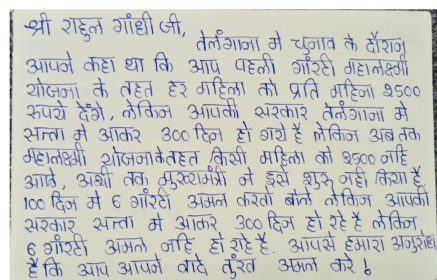 श्री राहुल गांधी जी,
तेलंगाना मे चुनाव के दौरान
आपने कहा था कि आप पहली गॉरंटी महालक्ष्मी
योजना के तहत हर महिला को प्रति महिना ₹2500
रुपये देंगे, लेकिन आपकी सरकार तेलंगाना मे
सत्ता मे आकर 300 दिन हो गये है लेकिन अब तक
महालक्ष्मी योजना के तहत किसी महिला को ₹2500 नहि
आऐ, अभी तक मुख्यमंत्री ने इसे शुरू नही किया है
100 दिन मे 6 गॉरंटी अमल करतो बोले लेकिन आपकी
सरकार सत्ता मे आकर 300 दिन हो रहे है लेकिन
6 गॉरंटी अमल नहि हो राहे है. आपसे हमारा अनुरोध
है कि आप आपने वादे तुरंत अमल करे!